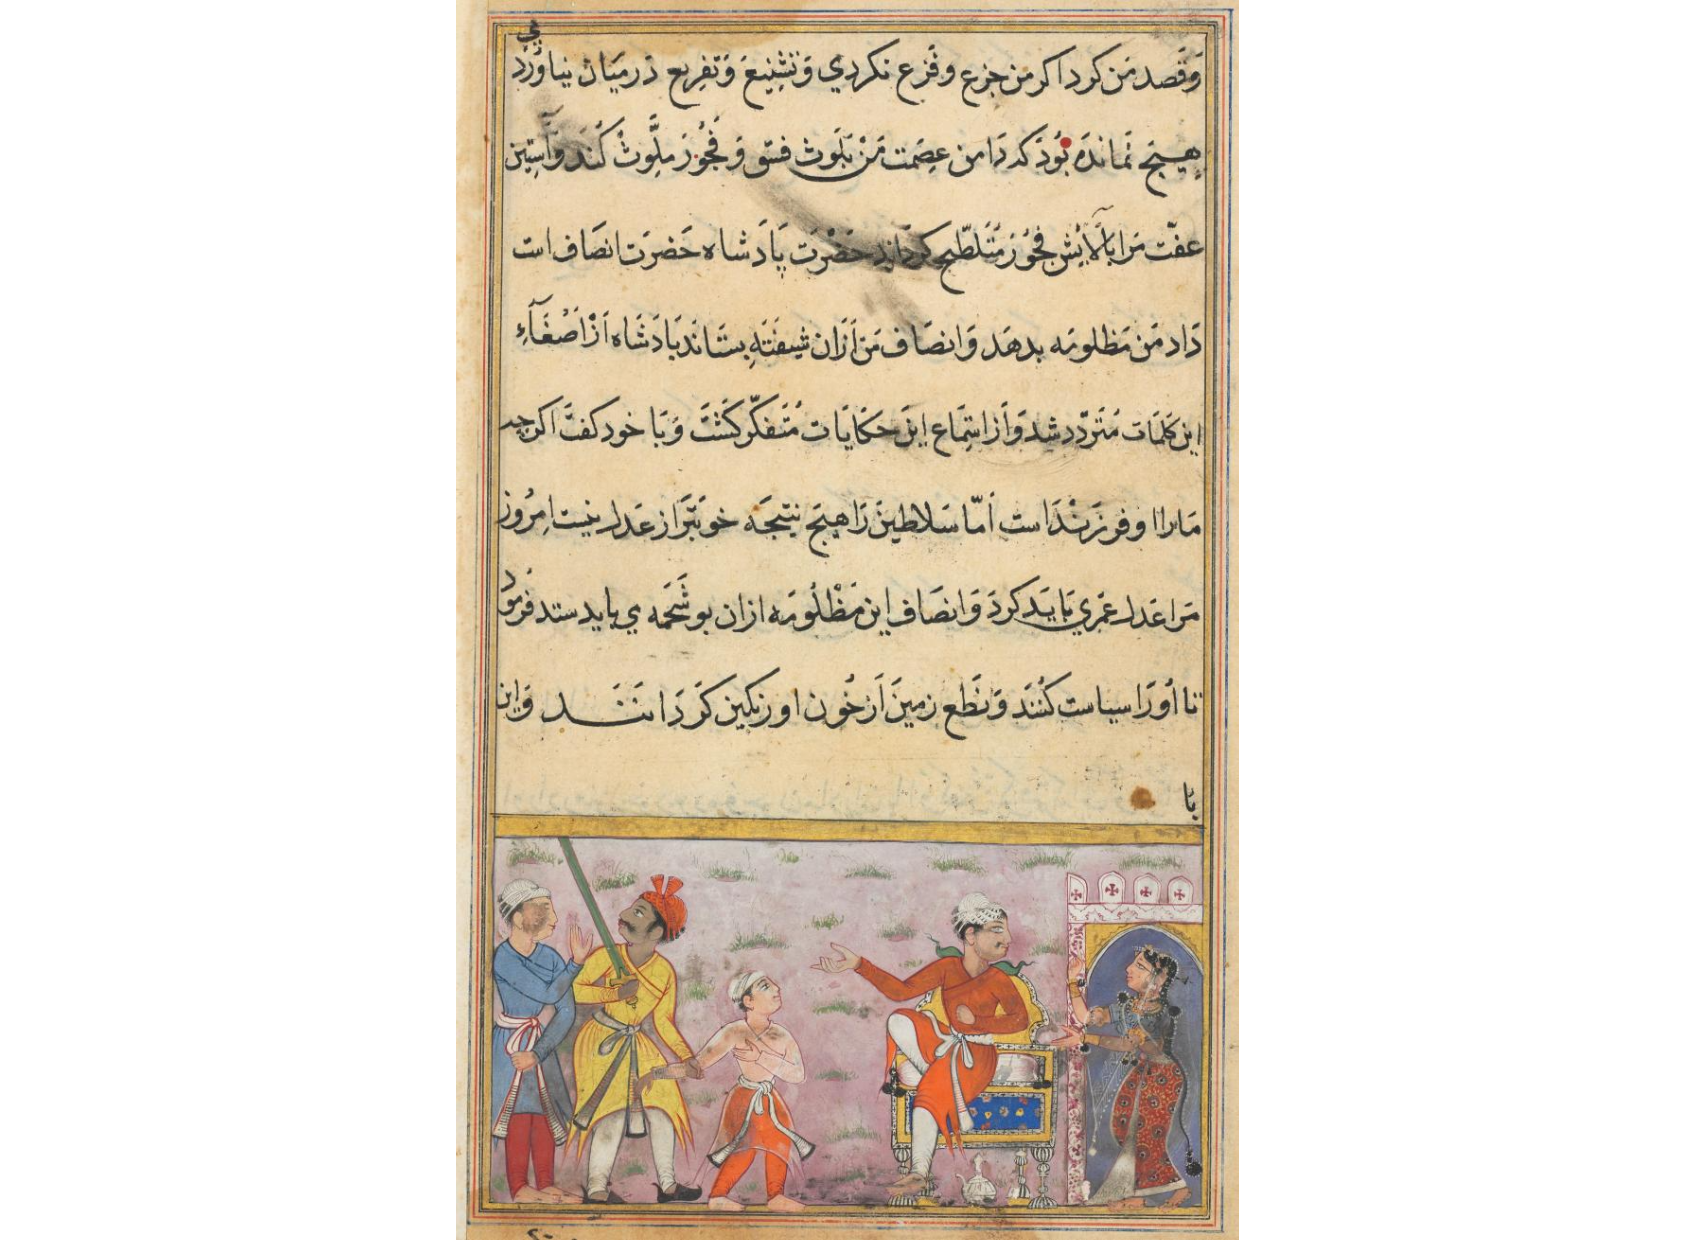 وَقَصد مَن كرد اكر من جزع و فَزع نكردي وَ تشنِيع وَ تفرِيع دَرميان نياوُرد
ي
هيچ نَماندَه بُودَ كه دَامن عِصمت مَن بَلَوث فسق وَ فجُور ملَّوث كُند وَآستين
عفّت مَرا بآلايش فجُور مُتَلطّخ كردَاند حَضْرَت پَادَشاه حَضرَت انصَاف است
دَاد مَن مَظلومَه بدهَد وَ انصَاف مَن اَزان شيفتَهِ بستَاند بَادَشَاه اَز اَصْغَآءِ
اين كَلمَات مَتَردّد شد وَ اَز استِمَاع اين حَكَايَات مُتَفكّر كَشتَ وَ بَا خود كفتَ اكرچه
مَارا او فرزَندَاست اَمّا سَلاطينَ رَا هيچ نتيجَه خوبتَر از عَدل نيست امرُوز
مَرا عَدل عمَري بَايَد كردَ وَ انصَاف اين مَظْلُومَه ازان بوشَحَمه مي بايد ستد فرمُود
تا اُورَا سياست كُنَند وَ نَطَع زمينَ اَز خُون او رَنكين كَردَانَنَد وَاين
با